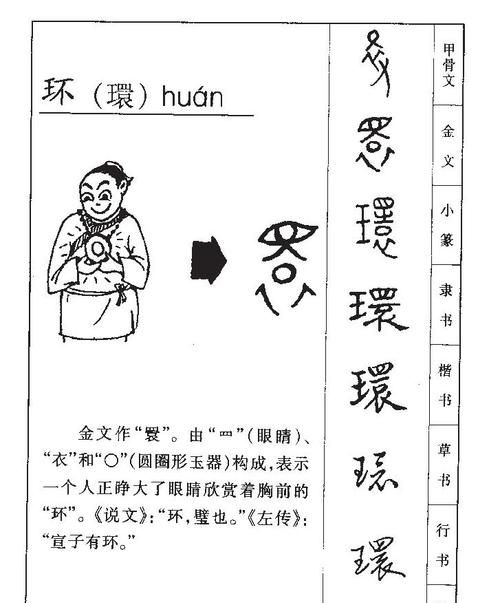 环（環）huán
金文作“睘”。由“罒”（眼睛）、
“衣”和“〇”（圆圈形玉器）构成，表示
一个人正睁大了眼睛欣赏着胸前的
“环”。《说文》：“环，璧也。”《左传》：
“宣子有环。”
甲骨文
金文
小篆
環
隶书
環
楷书
環
草书
行书
環